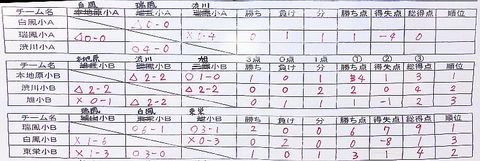 白鳳 瑞鳳 渋川
チーム名 小A 小A 小A 勝ち 負け 分 勝ち点 得失点 総得点 順位
白鳳小A △0-0
瑞鳳小A △0-0 ×0-4 0 1 1 1 -4 0
渋川小A ○4-0
本地原 渋川 旭 3点 0点 1点 ① ② ③
チーム名 小B 小B 小B 勝ち 負け 分 勝ち点 得失点 総得点 順位
本地原小B △2-2 ○1-0 1 0 1 4 1 3 1
渋川小B △2-2 △2-2 0 0 2 2 0 4 2
旭小B ×0-1 △2-2 0 1 1 1 -1 2 3
瑞鳳 白鳳 東栄
チーム名 小B 小B 小B 勝ち 負け 分 勝ち点 得失点 総得点 順位
瑞鳳小B ○6-1 ○3-1 2 0 0 6 7 9 1
白鳳小B ×1-6 ×0-3 0 2 0 0 -8 1 3
東栄小B ×1-3 ○3-0 1 1 0 3 1 4 2